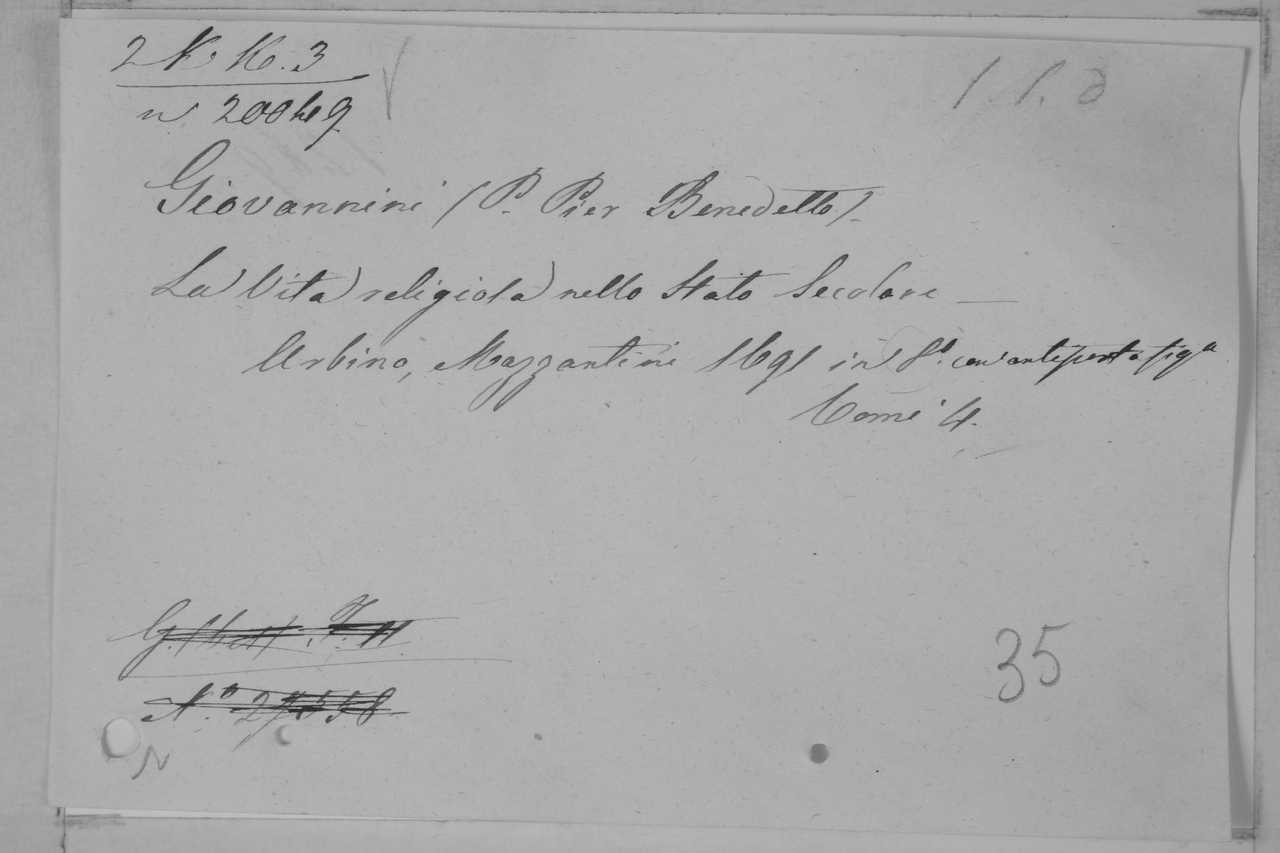 2 K. K. 3
1. 1. d
n 200469
Giovannini (P. Pier Benedetto).
La Vita religiosa nello Stato Secolare —
Urbino, Mazzantini 1691 in 8.º con antiporta fig.ª
Tomi 4.
35
N.º 2
N